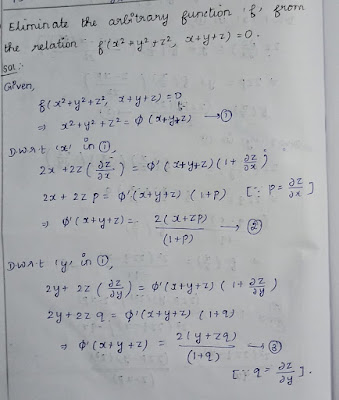 Eliminate the arbitrary function 'f' from
the relation f(x²+y²+z², x+y+z)=0.
Sol:-
Given,
f(x²+y²+z², x+y+z)=0
⇒ x²+y²+z² = ϕ(x+y+z) → ①
D.w.r.t 'x' in ①,
2x+2z(∂z/∂x) = ϕ'(x+y+z)(1+∂z/∂x)
2x+2zp = ϕ'(x+y+z)(1+p) [∵ p=∂z/∂x]
⇒ ϕ'(x+y+z) = 2(x+zp)/(1+p) → ②
D.w.r.t 'y' in ①,
2y+2z(∂z/∂y) = ϕ'(x+y+z)(1+∂z/∂y)
2y+2zq = ϕ'(x+y+z)(1+q)
⇒ ϕ'(x+y+z) = 2(y+zq)/(1+q) → ③
[∵ q=∂z/∂y].